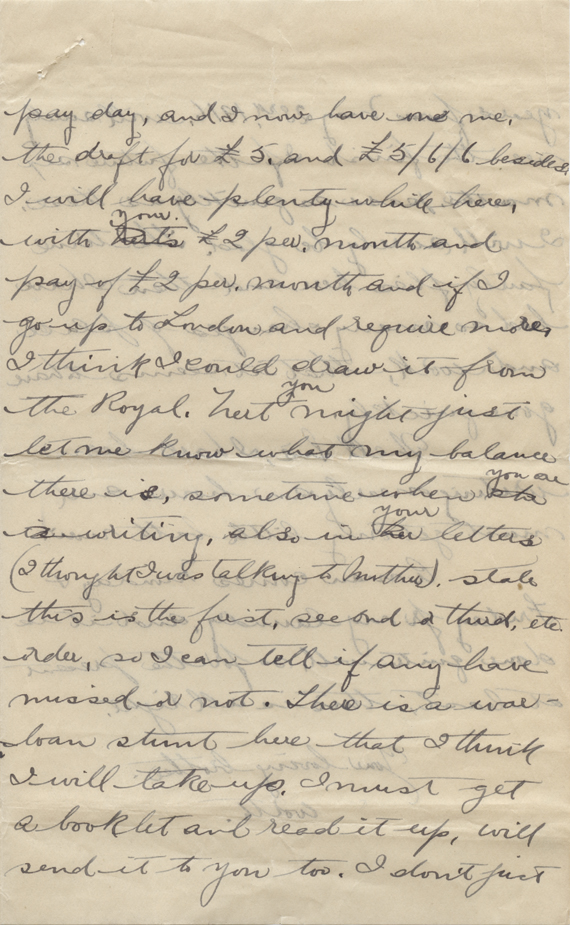 pay day, and I now have one me,
the draft for £5. and £5/6/6 besides,
I will have plenty while here,
your.
with £2 per. month and
pay of £2 per. month and if I
go up to London and require more,
I think I could draw it from
you
the Royal. might just
let me know what my balance
you are
there is, sometime when she
your
is writing, also in her letters
(I thought I was talking to Mother). state
this is the first, second or third, etc
order, so I can tell if any have
missed or not. There is a war-
loan stunt here that I think
I will take up. I must get
a booklet and read it up, will
send it to you too. I don't just